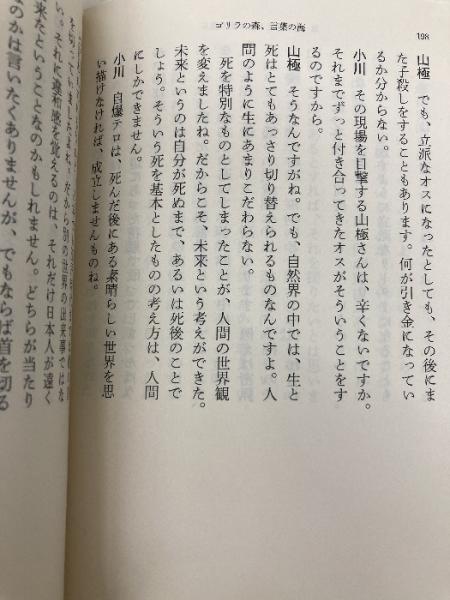 198
ゴリラの森、言葉の海
山極　でも、立派なオスになったとしても、その後にま
た子殺しをすることもあります。何が引き金になってい
るか分からない。
小川　その現場を目撃する山極さんは、辛くないですか。
それまでずっと付き合ってきたオスがそういうことをす
るのですから。
山極　そうなんですがね。でも、自然界の中では、生と
死はとてもあっさり切り替えられるものなんですよ。人
間のように生にあまりこだわらない。
死を特別なものとしてしまったことが、人間の世界観
を変えましたね。だからこそ、未来という考えができた。
未来というのは自分が死ぬまで、あるいは死後のことで
しょう。そういう死を基本としたものの考え方は、人間
にしかできません。
小川　自爆テロは、死んだ後にある素晴らしい世界を思
い描けなければ、成立しませんものね。
だから別の世界の出来事ではな
い。それに違和感を覚えるのは、それだけ日本人が遠く
来たということなのかもしれません。どちらが当たり
なのかは言いたくありませんが、でもならば首を切る